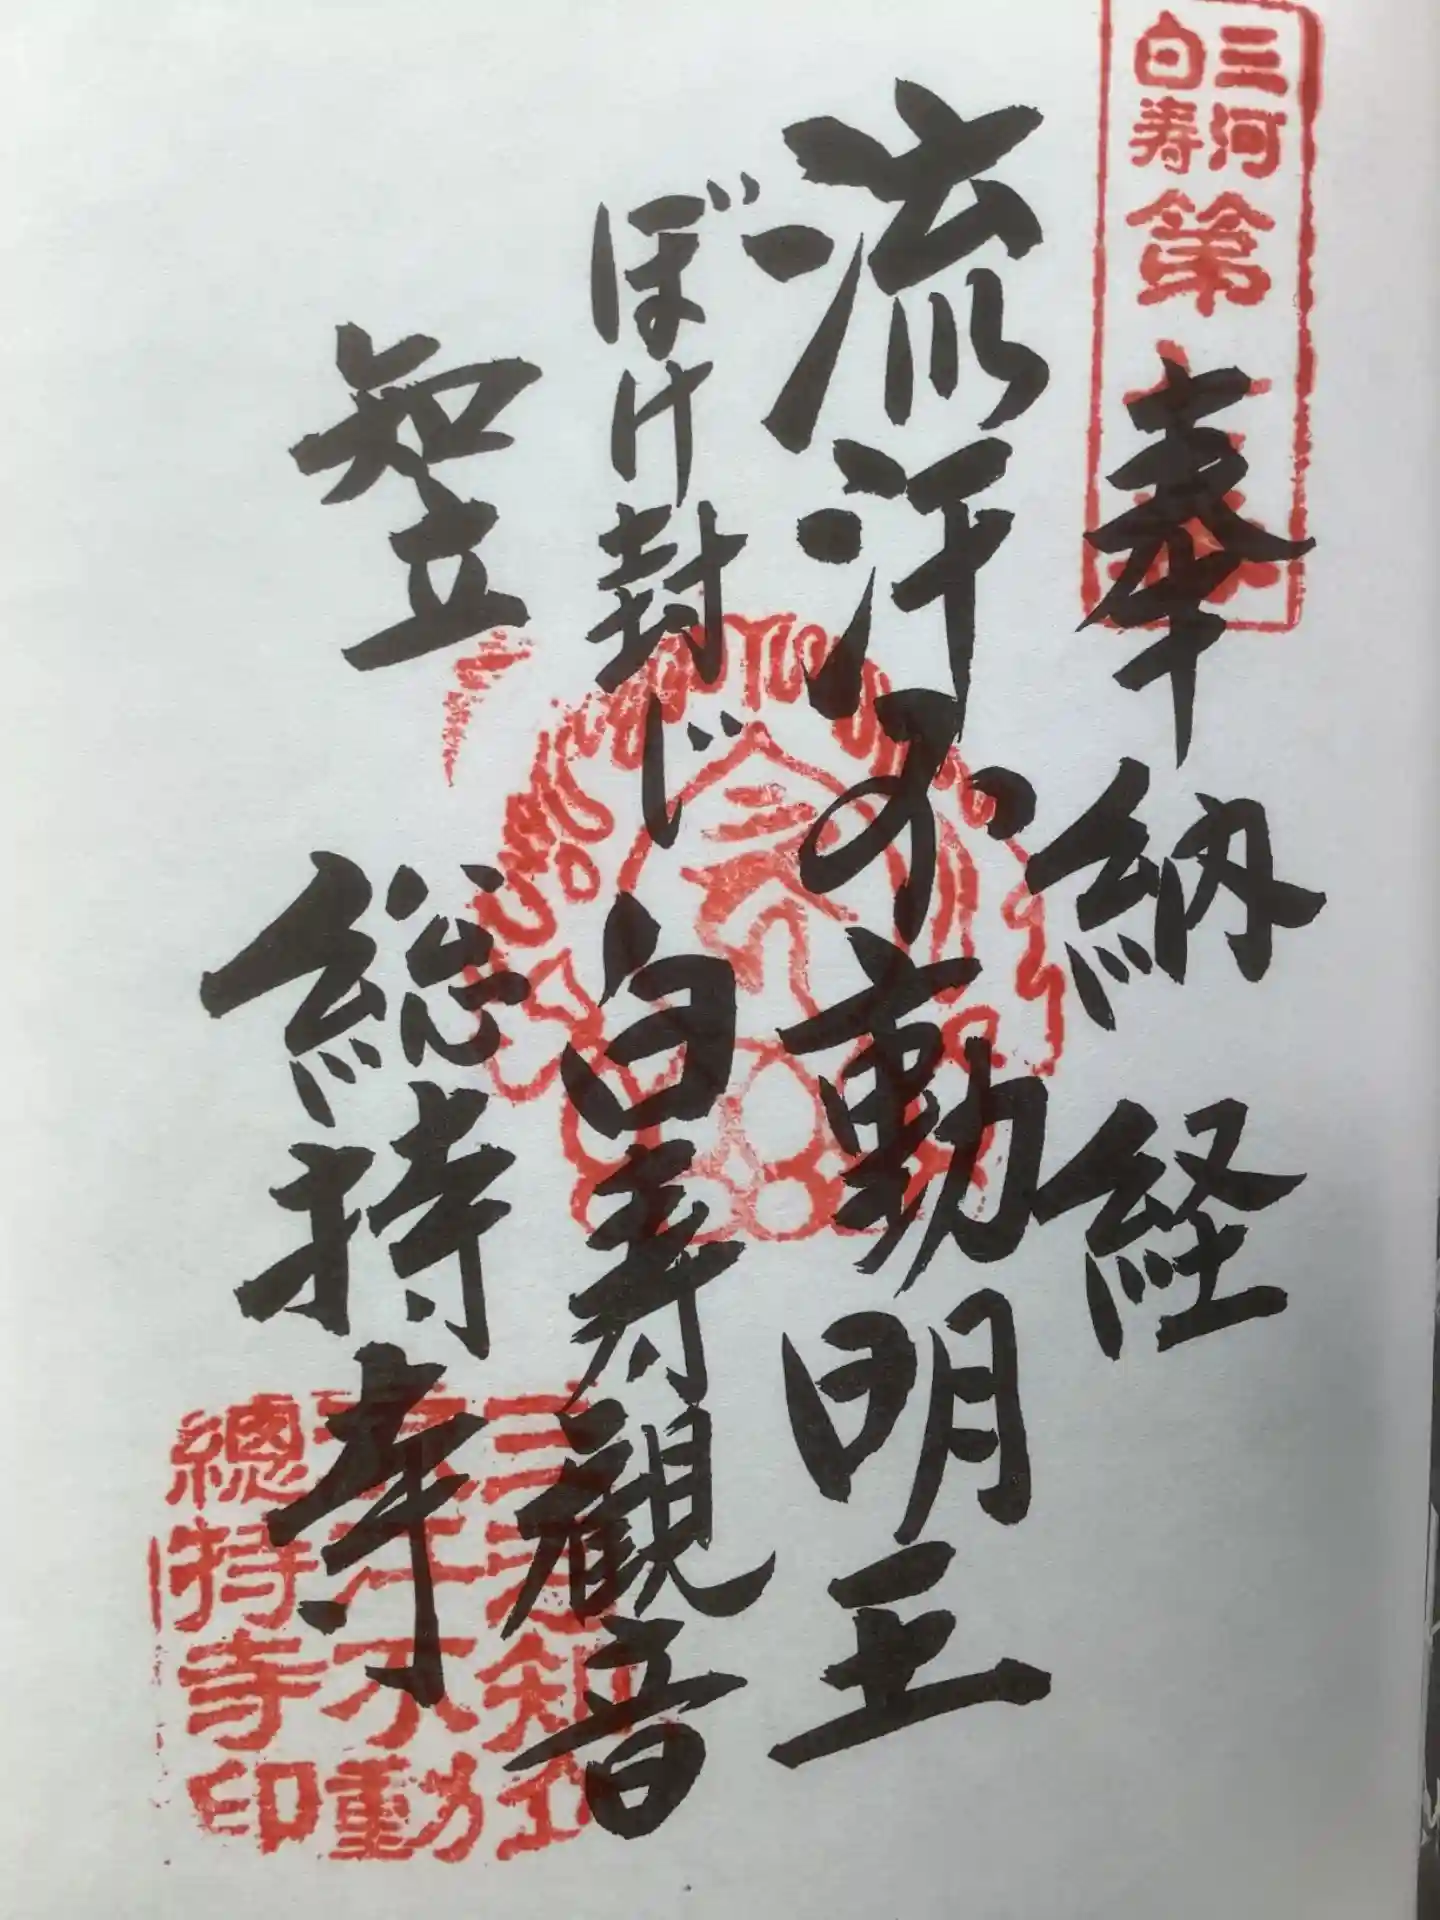 三河
白寿
第
奉納経
流汗不動明王
ぼけ封じ白寿観音
知立
総持寺
三
知立
不動
總持寺印